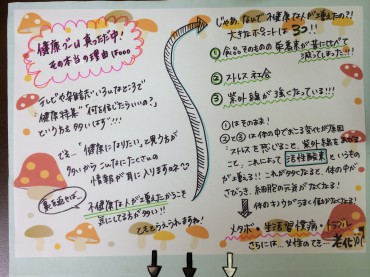 健康ブーム真っただ中!
その本当の理由は○○○
テレビや雑誌、いろんなところで
健康特集"何を信じたらいいの?"
という方も多いはず!!!
でも…「健康になりたい」と思う方が
多いからこんなにたくさんの
情報が耳に入りますのネ
裏を返せば…
不健康な人が増えたからこそ
気にしてる方が多い!!
ともとらえられますね!
じゃあ、なんで不健康な人が増えたの?!
大きなポイントは3つ!!
① 食品そのものの栄養素が昔に比べて
減ってしまった…!!
② ストレス社会
③ 紫外線が強くなっている!!!
①はそのまま!
②と③は体の中でおこる変化が原因
「ストレスを感じること、紫外線をあびる
こと」これによって活性酸素というもの
が増える!!これがふえてくると、体の中が
さびつき、細胞の元気がなくなる!
体のキカクがうまく働かなくなる!
メタボ・生活習慣病・トラブル
さらには…女性のてき…老化!!